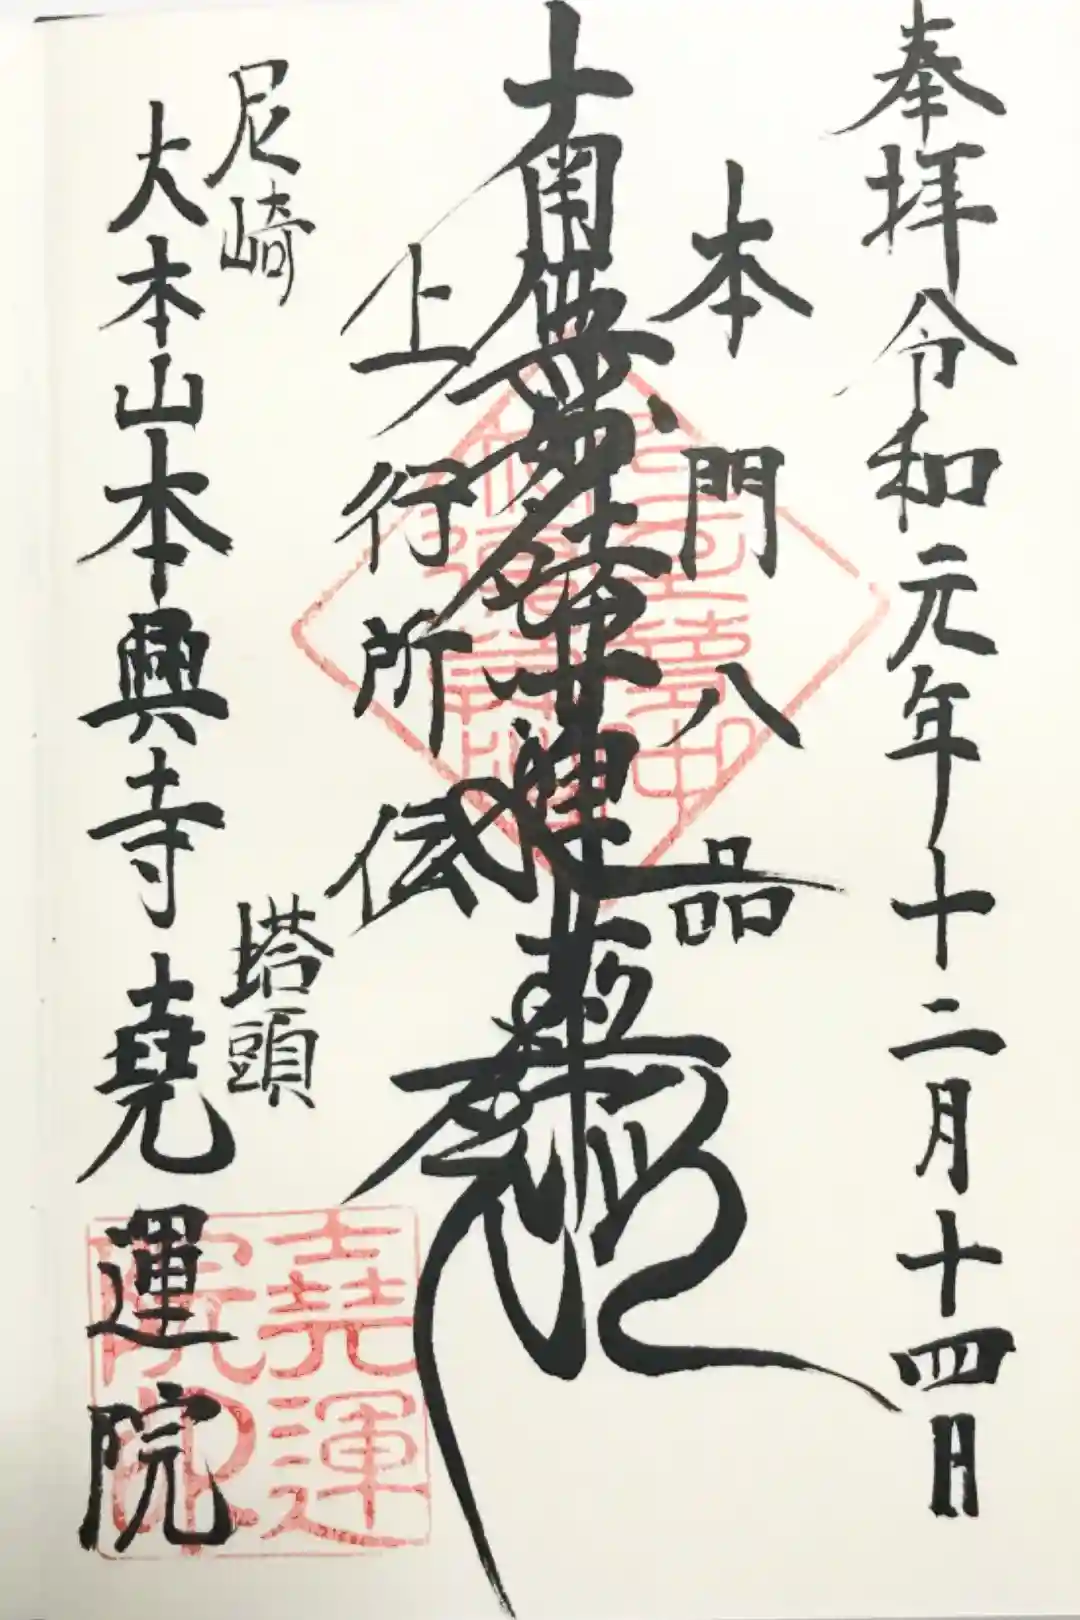 奉拝 令和元年十二月十四日
本門八品
南無妙法蓮華経
上行所伝
尼崎
大本山本興寺
塔頭
堯運院
堯運院印